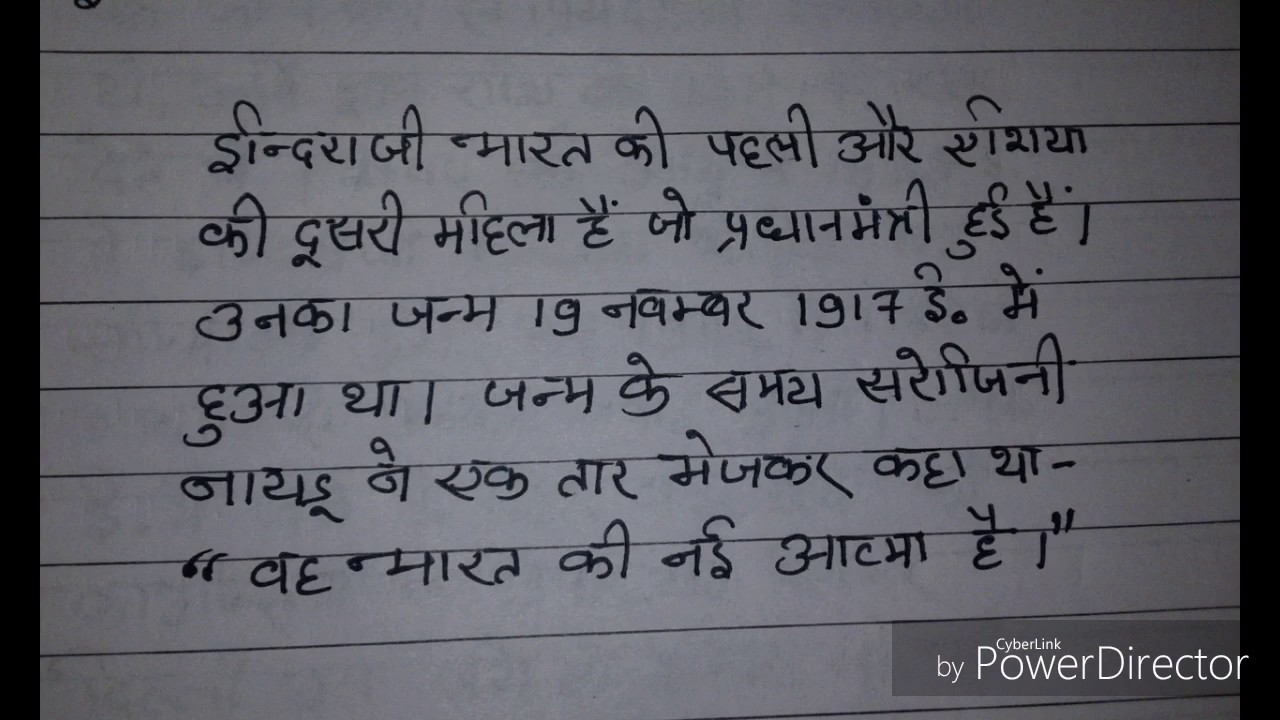 ईन्दिराजी भारत की पहली और एशिया
की दूसरी महिला हैं जो प्रधानमंत्री हुई हैं।
उनका जन्म 19 नवम्बर 1917 ई० में
हुआ था। जन्म के समय सरोजिनी
नायडू ने एक तार भेजकर कहा था-
"वह भारत की नई आत्मा है।"
CyberLink
by PowerDirector